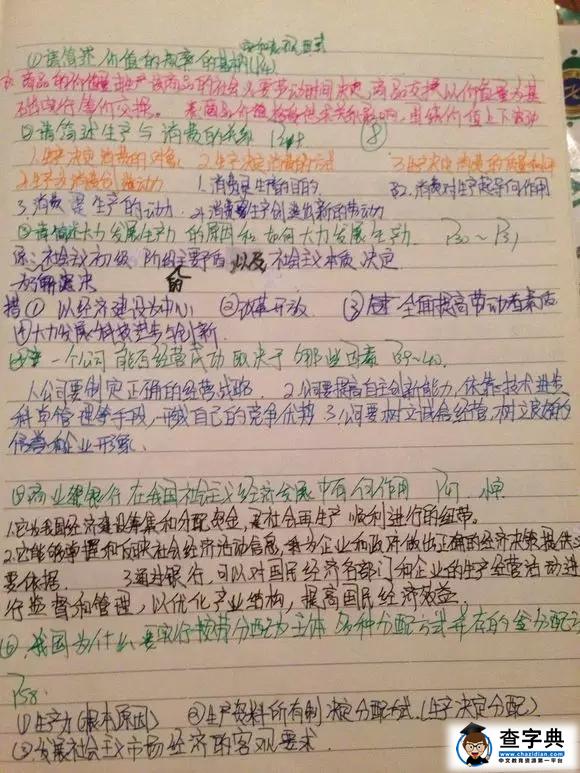 和表现形式
①请简述价值的规律的基本内容(P14)
商品的价值量由生产该商品的社会必要劳动时间决定,商品交换以价值量为基
础实行等价交换。 表:商品价格格受供求关系影响,围绕价值上下波动
②请简述生产与消费的关系 ⑧
1.生产决定消费的对象 2.生产决定消费的方式 3.生产决定消费的质量和水平
4.生产为消费创造动力 1.消费是生产的目的 2.消费对生产起导向作用
3.消费是生产的动力 4.消费为生产创造出新的劳动力
③请简述大力发展生产力的原因和如何大力发展生产力 P30~P31
原:社会主义初级阶段的主要矛盾以及社会主义本质决定
为解决
措① 以经济建设为中心 ②改革开放 ③ 全面提高劳动者素质
④大力发展科技进步与创新
一个公司能否经营成功取决于哪些因素 P39~40
1.公司要制定正确的经营战略. 2.公司要提高自主创新能力,依靠技术进步
科学管理等手段,形成自己的竞争优势 3.公司要树立诚信经营,树立良好的
信誉和企业形象.
⑤商业银行在我国社会主义经济发展中有何作用 P47
1.它为我国经济建设筹集和分配资金,是社会再生产顺利进行的纽带。
2.它能够掌握和反映社会经济活动信息,为企业和政府做出正确的经济决策提供必
要依据. 3通过银行,可以对国民经济各部门和企业的生产经营活动进
行监督和管理,以优化产业结构,提高国民经济效益.
⑥.我国为什么要实行按劳分配为主体 多种分配方式并存的
P58.
①生产力(根本原因) ②生产资料所有制决定分配方式.(生产决定分配)
③发展社会主义市场经济的客观要求.
查字典
www.chazidian.com
中文教育资源第一平台